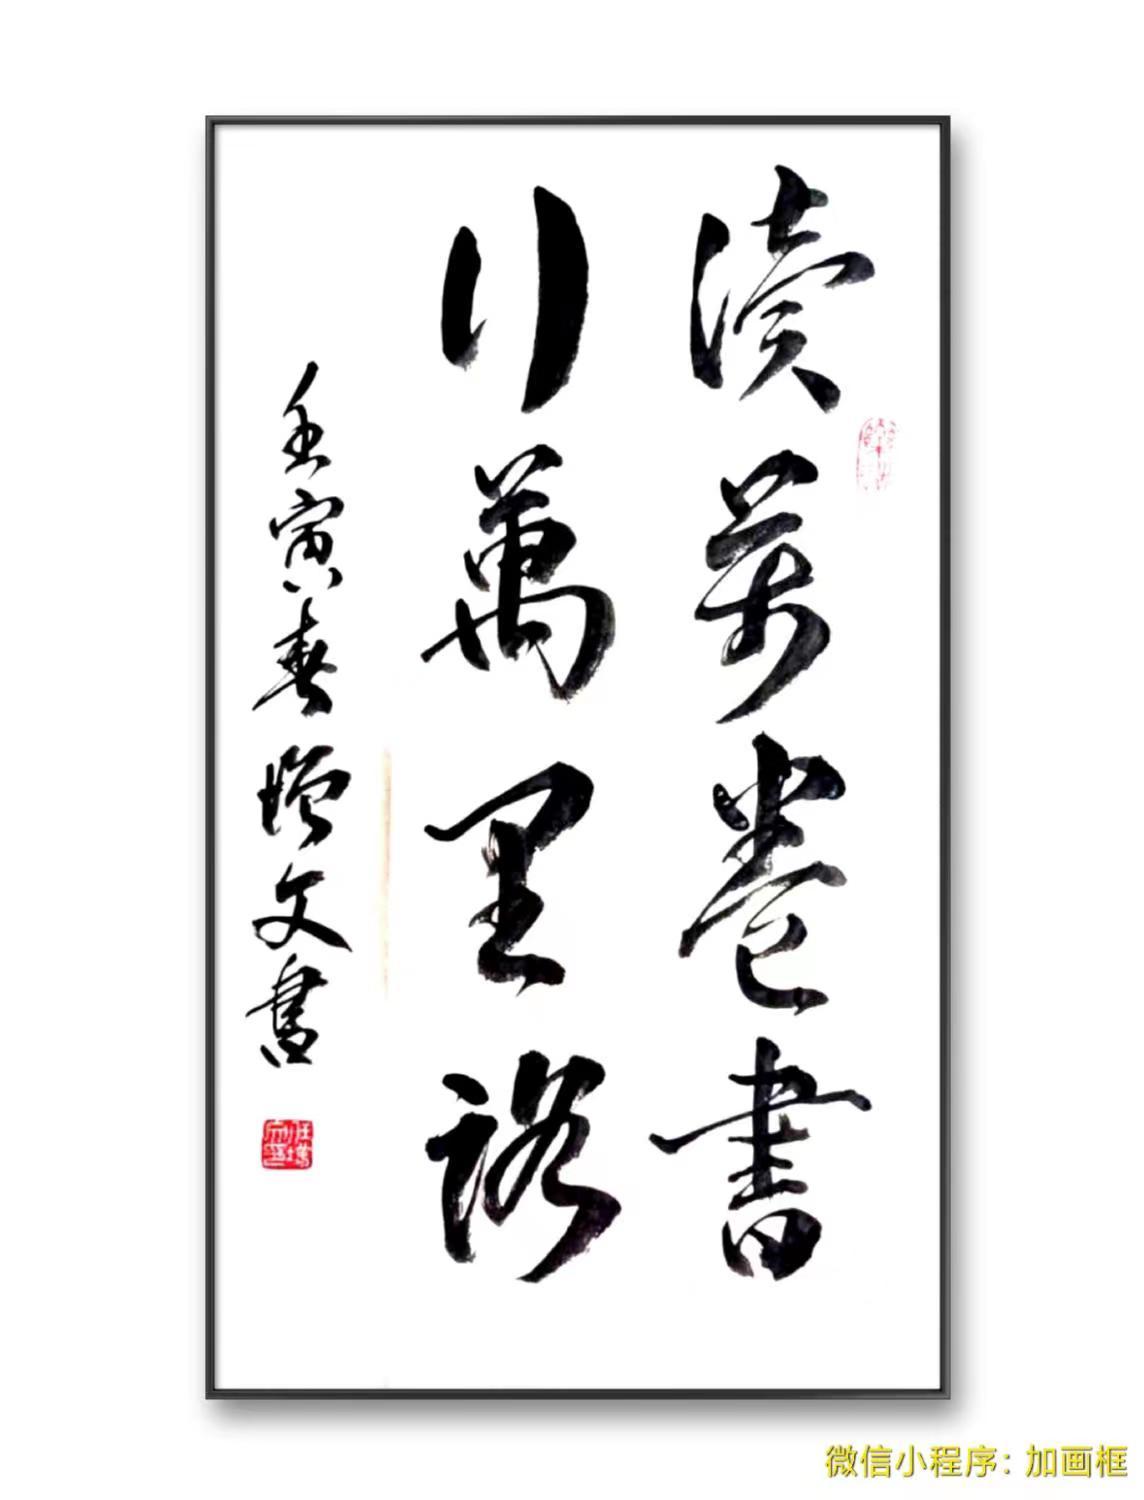 读万卷書
行萬里路
壬寅春增文書
微信小程序：加画框